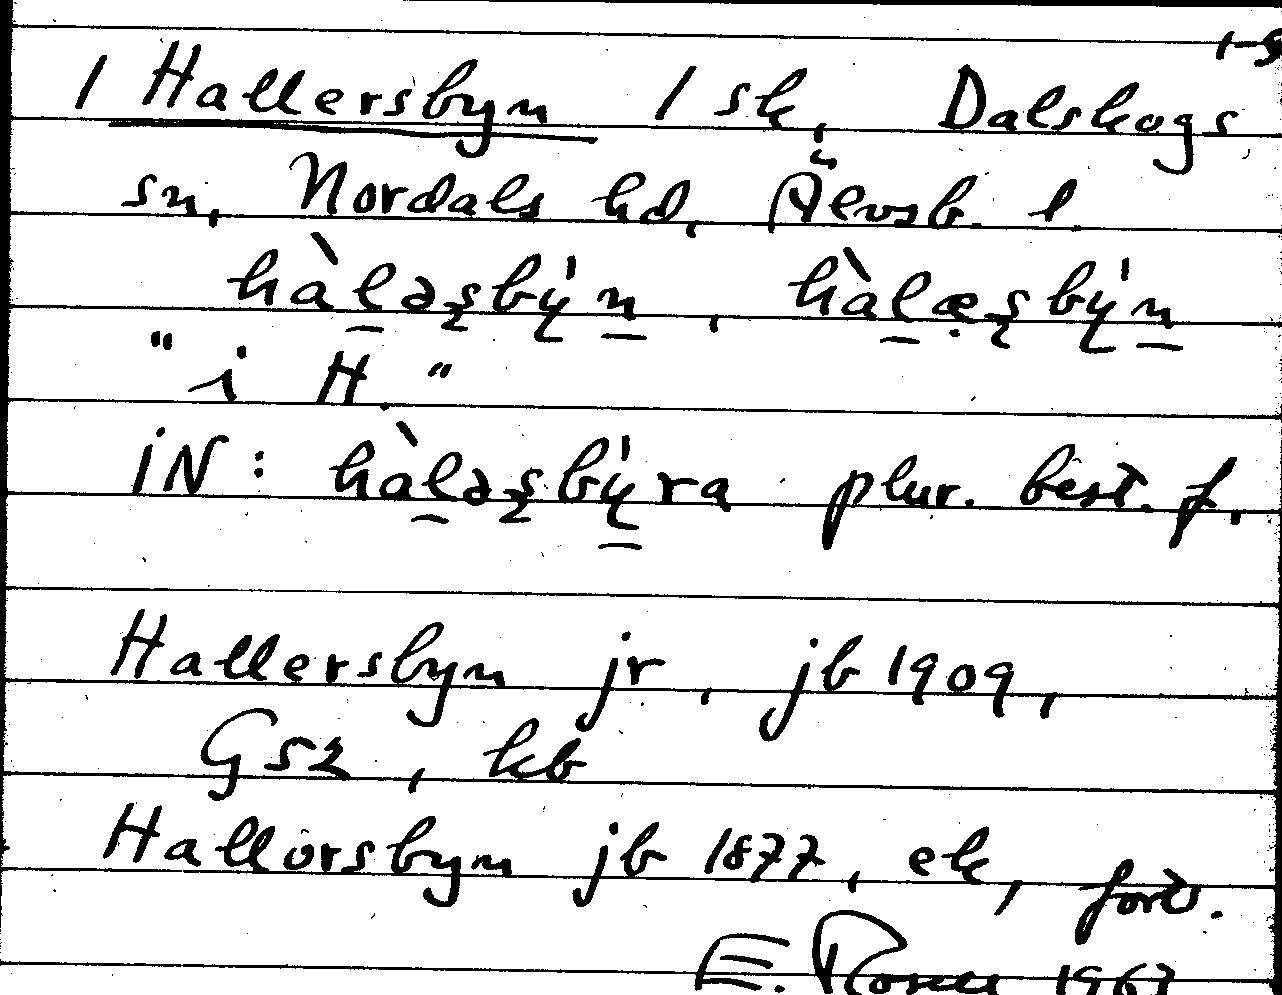 1-5
1 Hallersbyn 1 sk, Dalskogs
sn, Nordals hd, Älvsb. l.
hàl̠əʂbýn̠, hàl̠æʂbýn̠
"i H."
iN: hàl̠əʂbýra plur. best. f.
Hallersbyn jr, jb 1909,
GSz, kb
Hallorsbyn jb 1877, ek, fort.
E. 1967